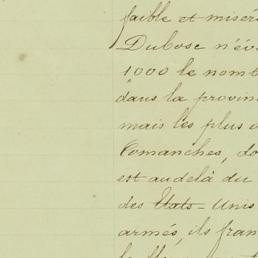 faible et misér
Dubosc n'év
1000 le nomb
dans la provin
mais les plus
Comanches, do
est audelà du
des Etats-Unis
armés, ils fran